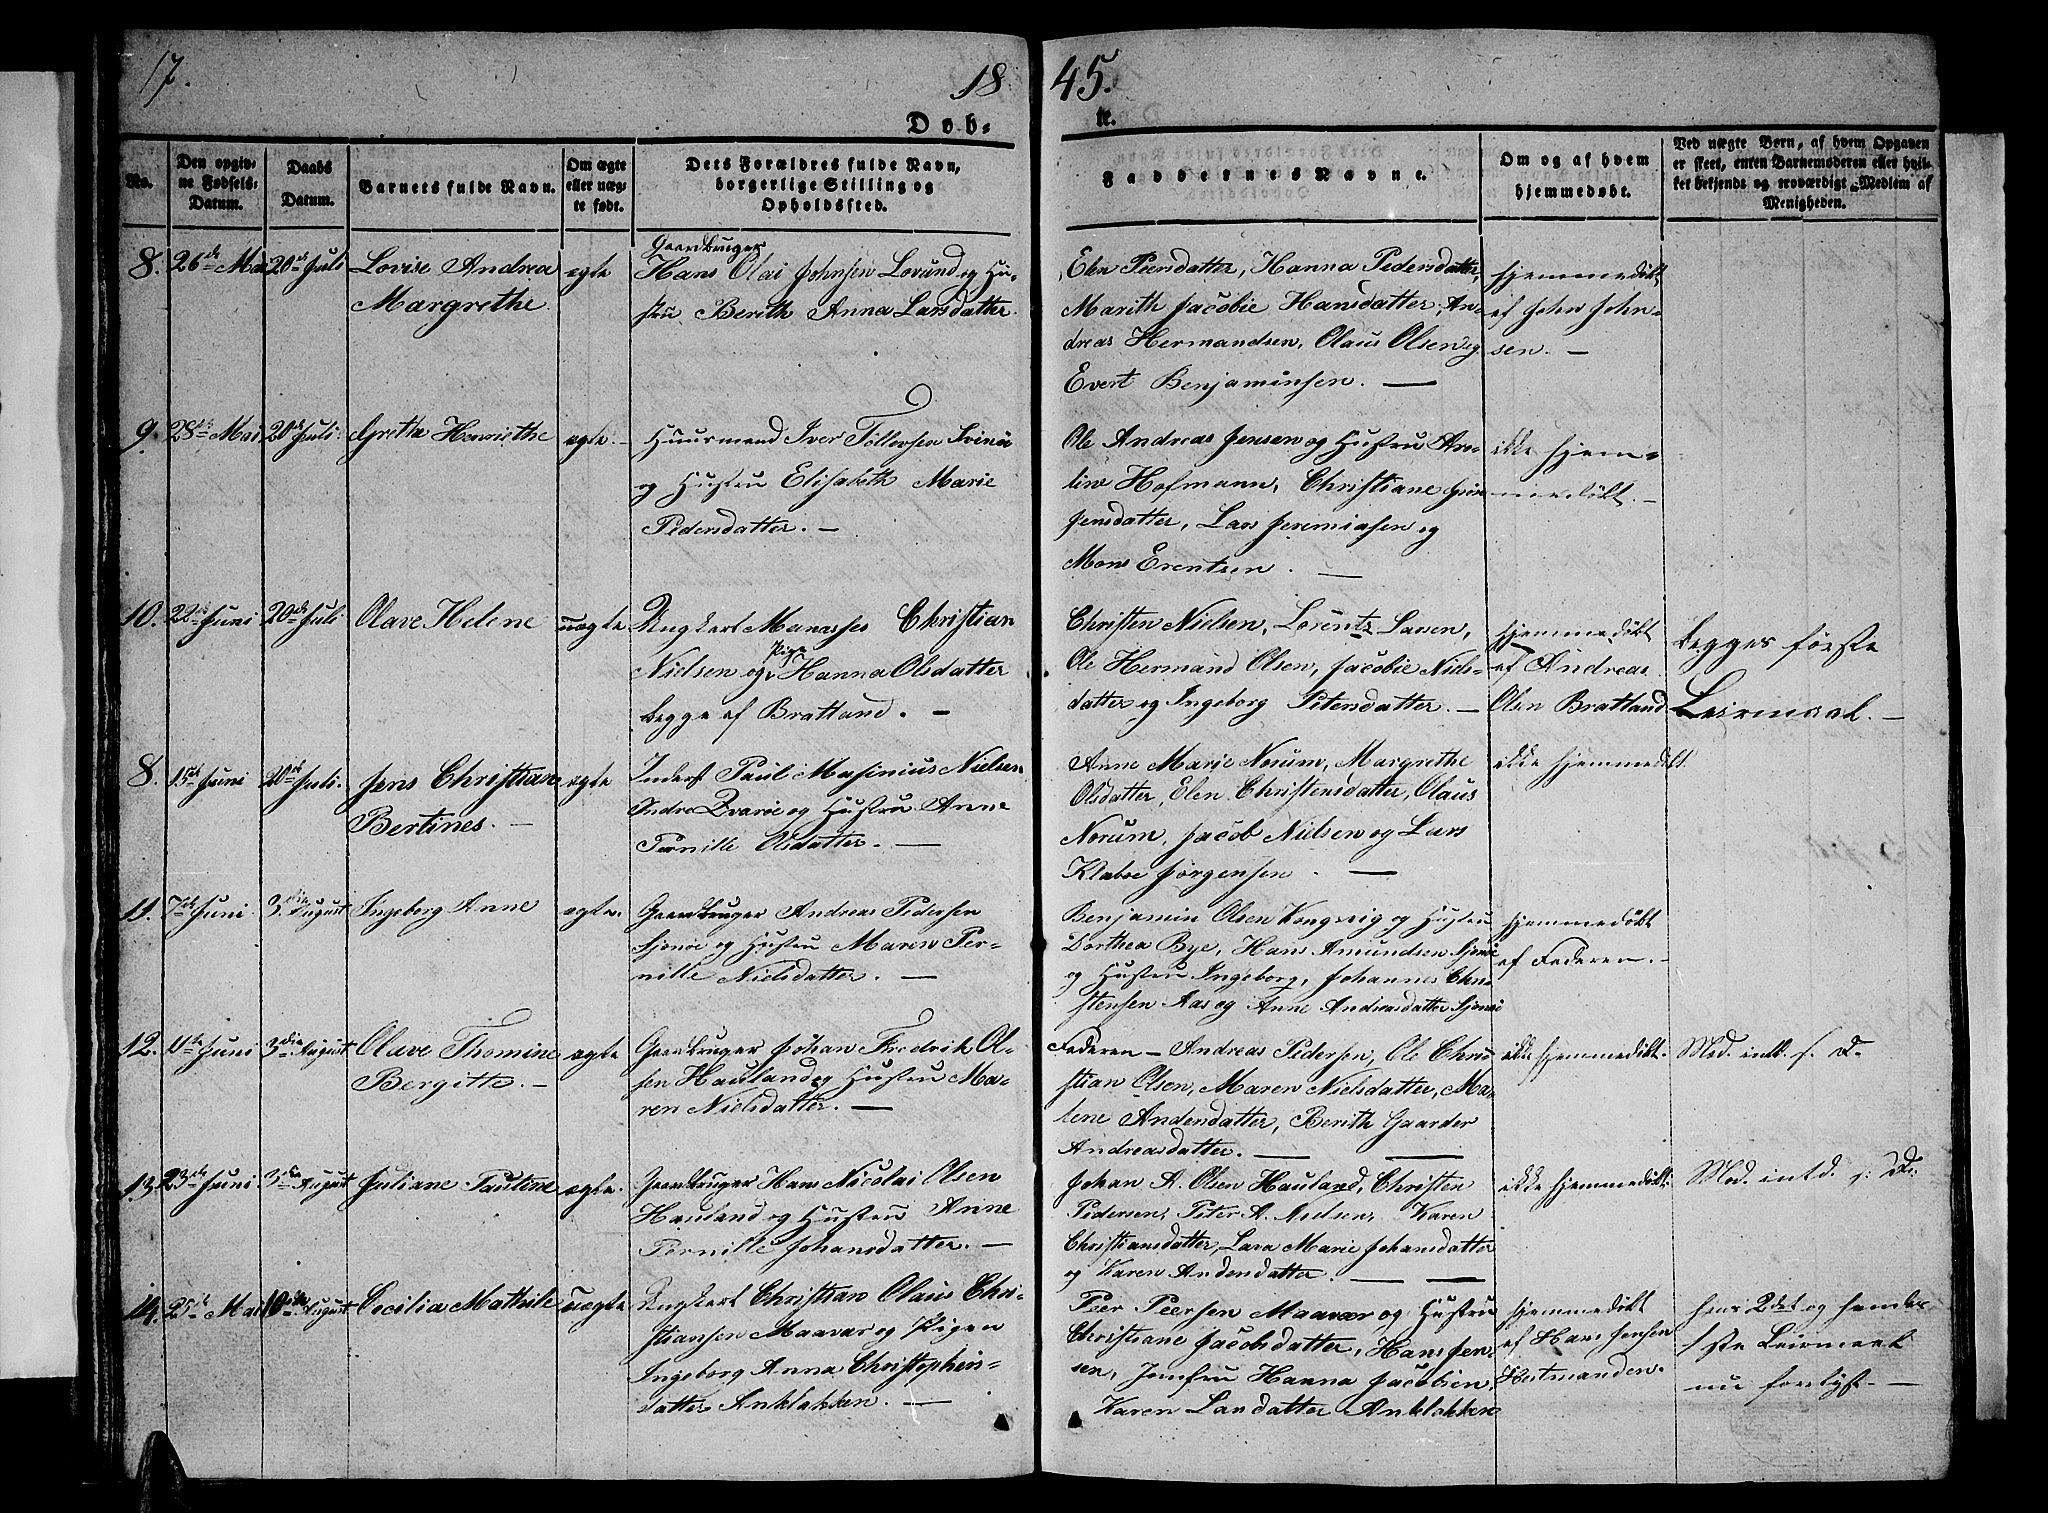 17.
18
45.
Døb-
te.
No.
Den opgiv-
ne Fødsels-
Datum.
Daabs
Datum.
Barnets fulde Navn.
Om ægte
eller uæg-
te født.
Dets Forældres fulde Navn,
borgerlige Stilling og
Opholdssted.
Faddernes Navne.
Om og af hvem
hjemmedøbt.
Ved uægte Børn, af hvem Opgaven
er skeet, enten Barnemoderen eller hvil-
ket bekjendt og troværdigt Medlem af
Menigheden.
8. 26de Mai 20de Juli Lovise Andrea
Margrethe
ægte
Gaardbruger
Hans Olai Johnsen Lovund og Hu-
stru Berith Anna Larsdatter.
Elen Peersdatter, Hanna Pedersdatter,
Marith Jacobie Hansdatter, An-
dreas Hermandsen, Olaus Olsen og
Evert Benjaminsen. —
hjemmedøbt
af John John-
sen. —
9. 28de Mai 20de Juli. Gretha Henriethe
ægte. —
Huusmand Iver Tollevsen
og Hustru Elisabeth Marie
Pedersdatter. —
Ole Andreas Jensen og Hustru Are-
line Hofmann, Christiane
Jensdatter, Lars Jeremiasen og
Mons Erentsen. —
ikke hjem-
medøbt. —
10. 22de Juni 20de Juli Olave Helene
uægte
Ungkarl Manasses Christian
Nielsen og Pige Hanna Olsdatter
begge af Bratland. —
Christen Nielsen, Lorentz Larsen,
Ole Hermand Olsen, Jacobie Niels-
datter og Ingeborg Petersdatter. —
hjemmedøbt
af Andreas
Olsen Bratland
begges første
Leiermaal. —
8. 15de Juni 20de Juli. Jens Christian
Bertines. —
ægte
Inderst Paul Masinius Nielsen
Indre Qvarøe og Hustru Anne
Pernille Olsdatter. —
Anne Marie Norum, Margrethe
Olsdatter, Elen Christensdatter, Olaus
Norum, Jacob Nielsen og Lars
Klaboe Jørgensen. —
ikke hjemmedøbt.
11. 7de Juni 3die August Ingeborg Anne
ægte.
Gaardbruger Andreas Pedersen
Sjonøe og Hustru Maren Per-
nille Nielsdatter. —
Benjamin Olsen Kongsvig og Hustru
Dorthea Bye, Hans Amundsen Sjonøe
og Hustru Ingeborg, Johannes Chri-
stensen Aas og Anne Andreasdatter Sjonøe
hjemmedøbt
af Faderen. —
12. 11te Juni 3die August Olave Thomine
Bergitte. —
ægte
Gaardbruger Johan Fredrik Ol-
sen Hauland og Hustru Ma-
ren Nielsdatter. —
Faderen — Andreas Pedersen, Ole Chri-
stian Olsen, Maren Nielsdatter, Ma-
lene Andersdatter, Berith Gaarder
Andreasdatter. —
ikke hjemmedøbt.
Mod. intd. s. D.
13. 23de Juni 3die August Juliane Pauline
ægte.
Gaardbruger Hans Nicolai Olsen
Hauland og Hustru Anne
Pernille Johansdatter. —
Johan A. Olsen Hauland, Christen
Pedersen, Peter A. Nielsen, Karen
Christiansdatter, Lava Marie Johansdatter
og Karen Andersdatter. —
ikke hjemmedøbt.
Mod. intd. s. D.
14. 25de Mai 10de August Cecilia Mathilde
uægte
Ungkarl Christian Olaus Chri-
stiansen Maavær og Pigen
Ingeborg Anna Christophers-
datter Anklakken. —
Peer Peersen Maavær og Hustru
Christiane Jacobsdatter, Hans Jen-
sen, Jomfru Hanna Jacobsen,
Karen Larsdatter Anklakken
hjemmedøbt
af Hans Jensen
Hestmanden.
hans 2det og hendes
1ste Leiermaal
nu forelyst. —